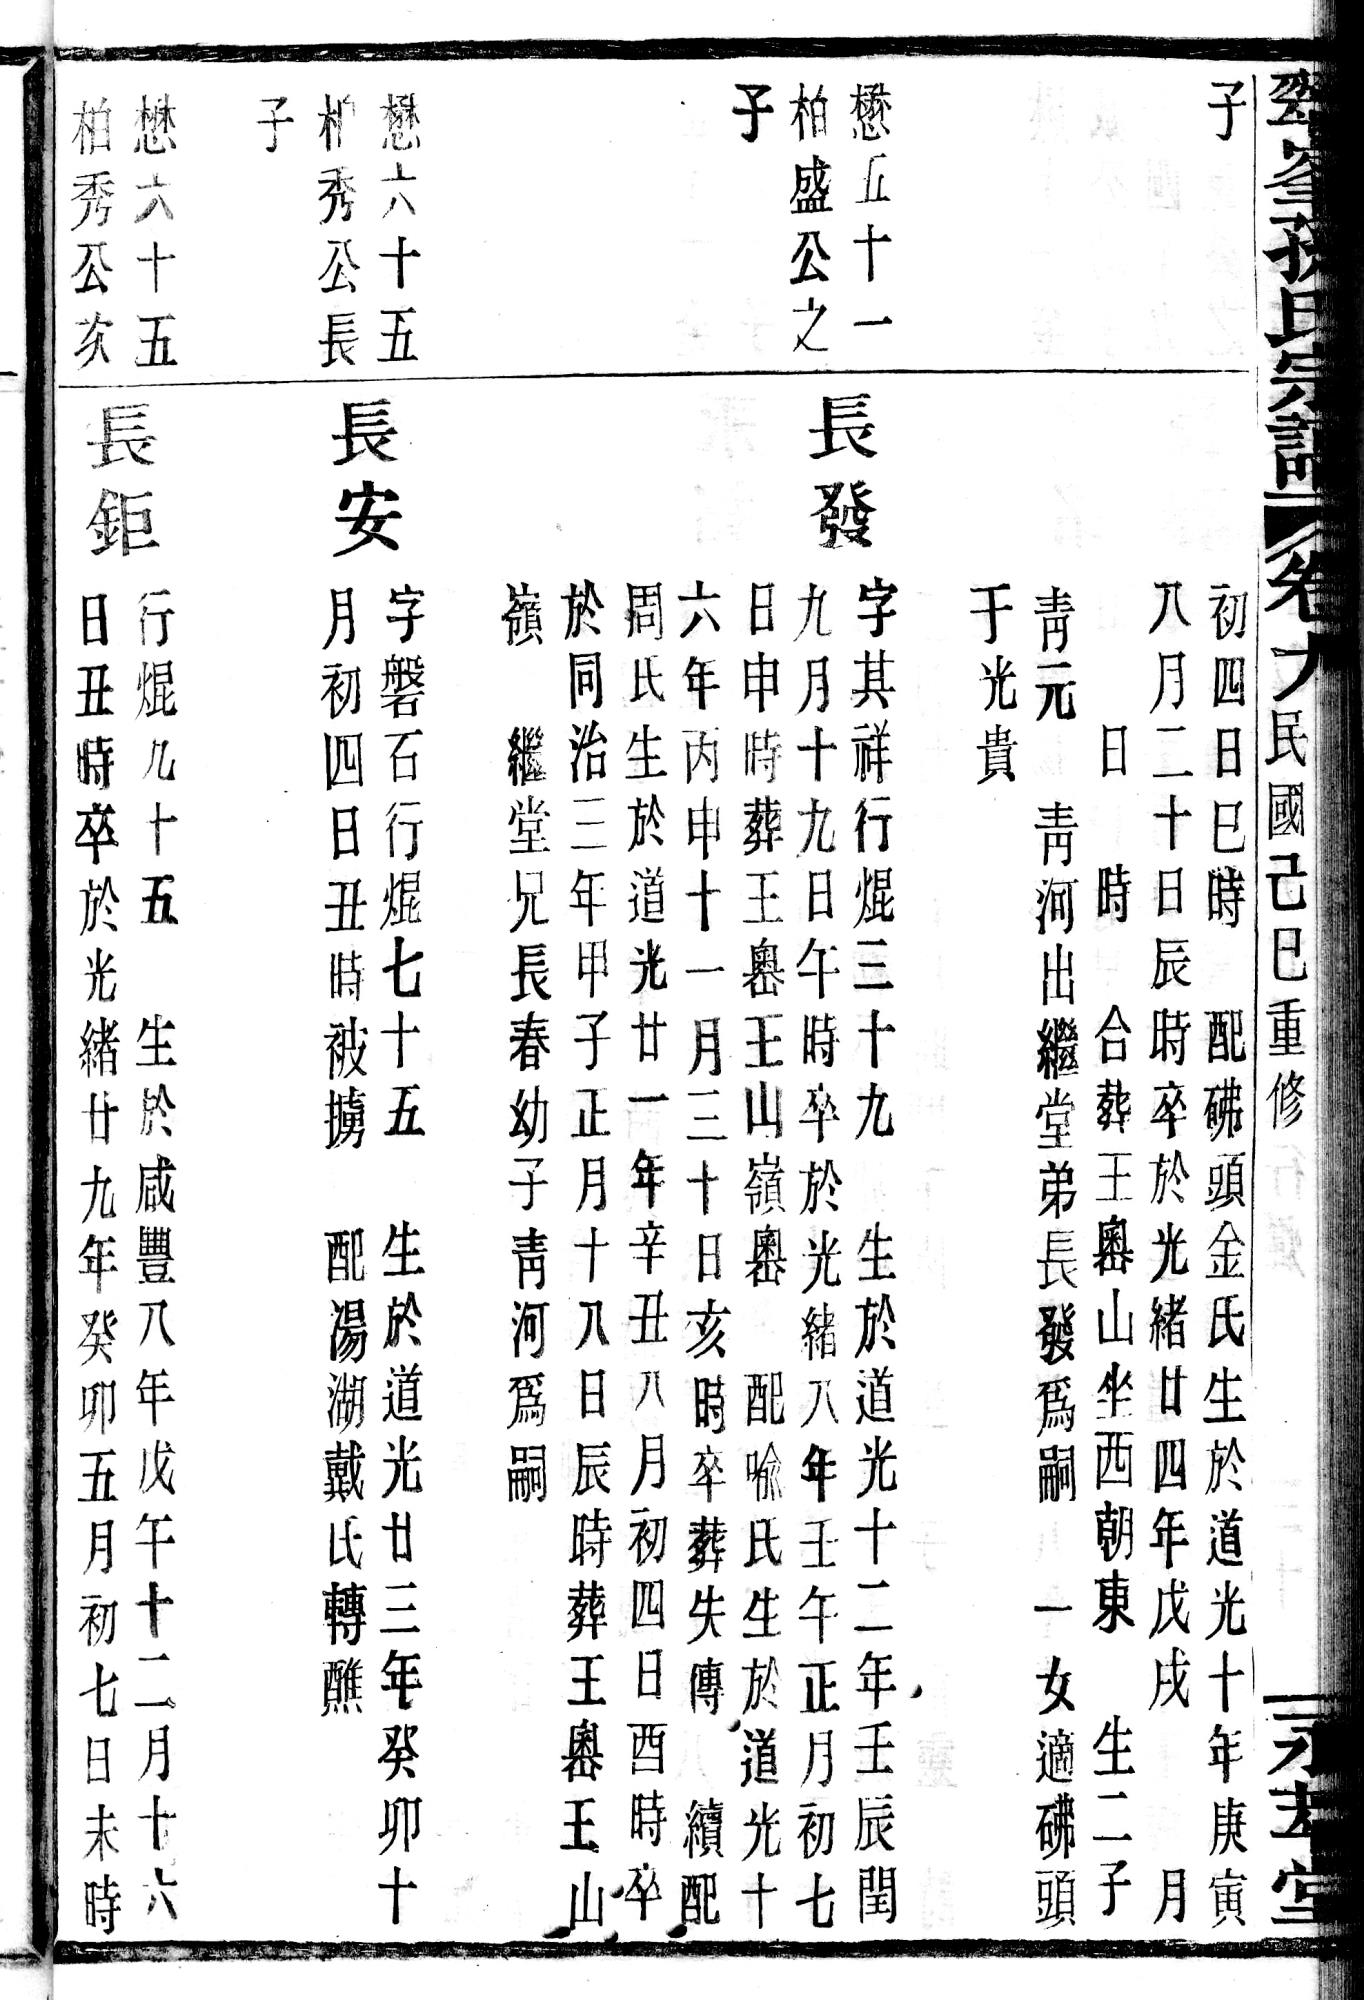 翠峯孫氏宗譜
卷九
民國己巳重修
永孝堂
子
初四日巳時　配砩頭金氏生於道光十年庚寅
八月二十日辰時卒於光緒廿四年戊戌　月
日　時　合葬王奧山坐西朝東　生二子
青元　青河出繼堂弟長發爲嗣　一女適砩頭
于光貴
懋五十一
柏盛公之
子
長發
字其祥行焜三十九　生於道光十二年壬辰閏
九月十九日午時卒於光緒八年壬午正月初七
日申時葬王嶴王山嶺嶴　配喩氏生於道光十
六年丙申十一月三十日亥時卒葬失傳　續配
周氏生於道光廿一年辛丑八月初四日酉時卒
於同治三年甲子正月十八日辰時葬王嶴王山
嶺　繼堂兄長春幼子青河爲嗣
懋六十五
柏秀公長
子
長安
字磐石行焜七十五　生於道光廿三年癸卯十
月初四日丑時被擄　配湯湖戴氏轉醮
懋六十五
柏秀公次
長鉅
行焜九十五　生於咸豐八年戊午十二月十六
日丑時卒於光緒廿九年癸卯五月初七日未時